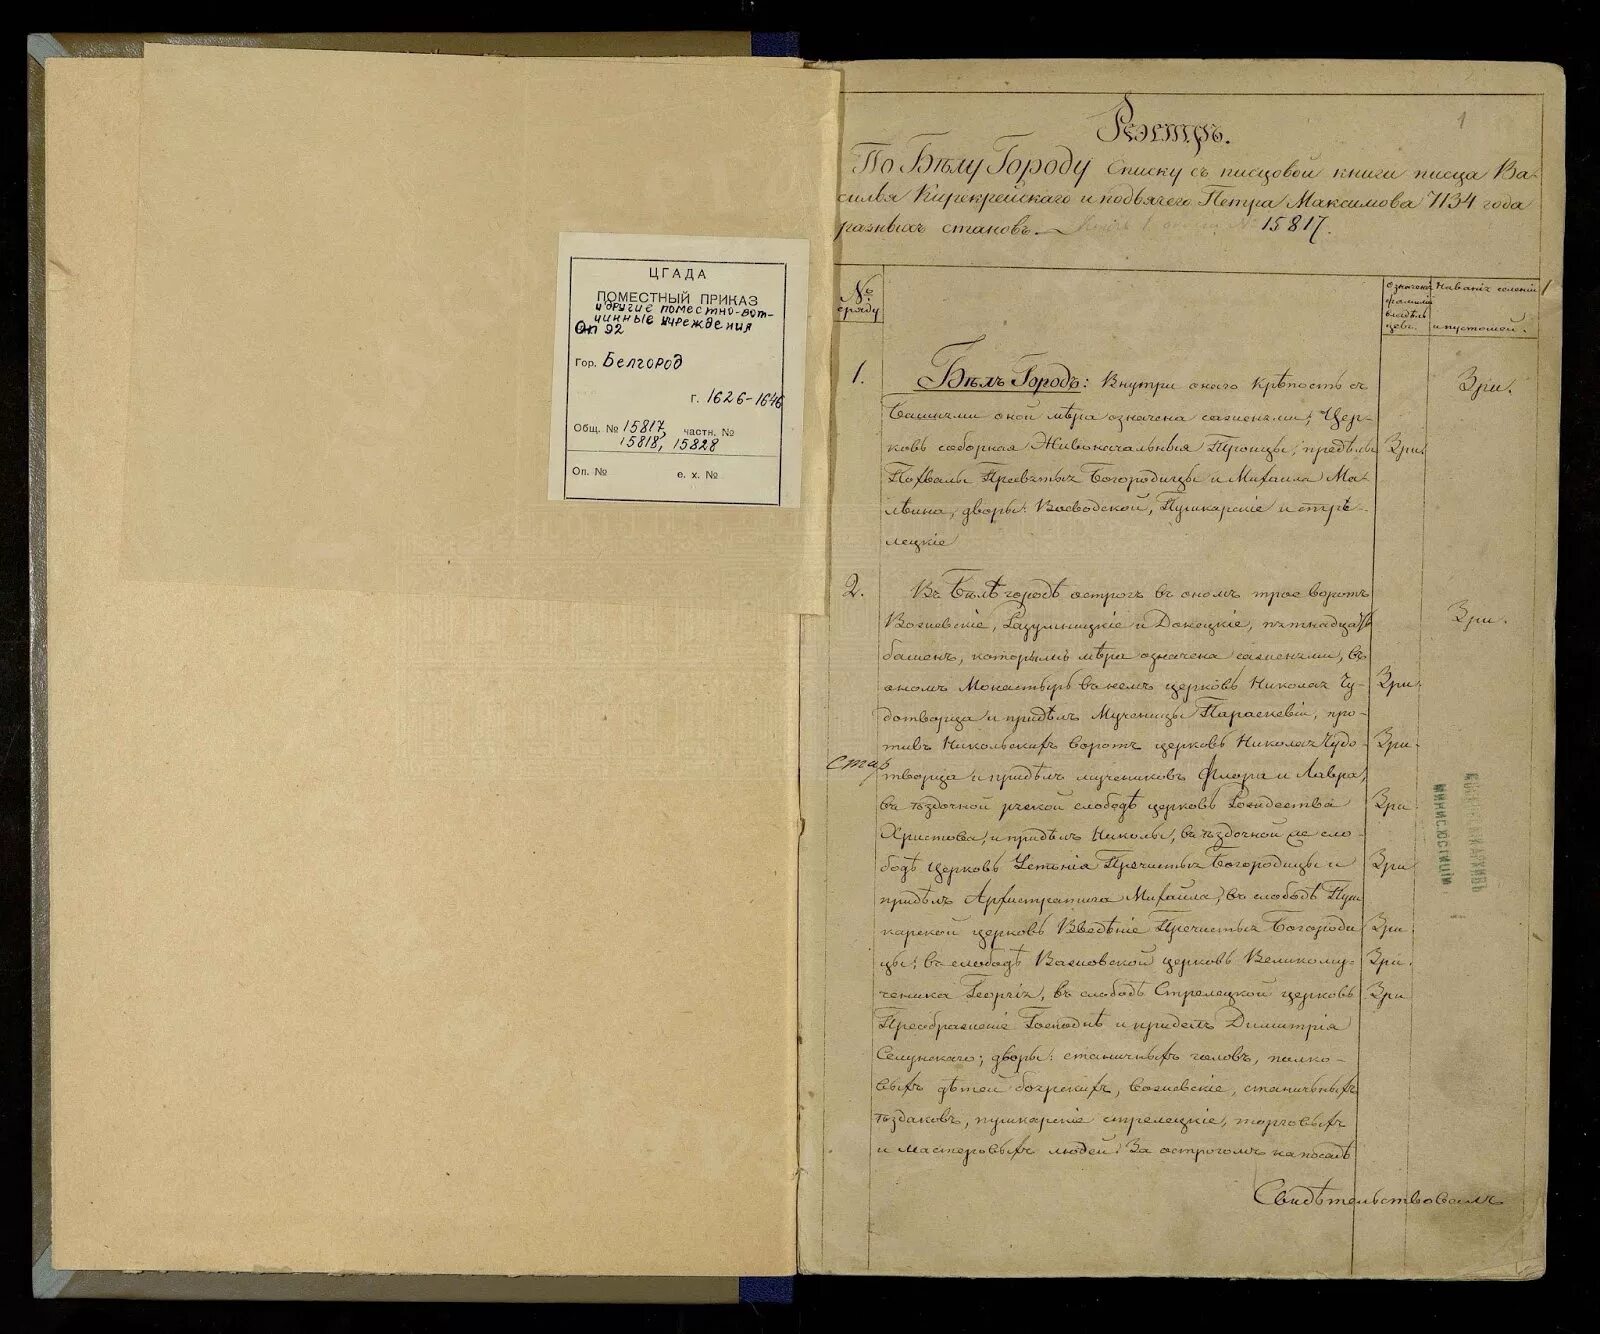 ЦГАДА
ПОМЕСТНЫЙ ПРИКАЗ
и другие поместно-вот-
чинные учреждения
Оп 92
Гор. Белгород
г. 1626-1646
Общ. № 15817, частн. №
15818, 15828
Оп. № е. х. №
1
Реэстръ.
По Бѣлу Городу списку съ писцовой книги писца Ва-
силья Керекрейскаго и подьячего Петра Максимова 7134 года
разныхъ становъ. № 15817.
№ сряду
означеніе фамилій владѣль цевъ.
названіе селеній и пустошей.
1
1. Бѣлъ Городъ: Внутри онаго крѣпость съ Зри.
башнями оной мѣра означена саженями; Цер-
ковь соборная Живоначальныя Троицы, предѣлы Зри.
Похвалы Пресвятыя Богородицы и Михаила Ма-
леина, дворы: Воеводской, Пушкарскіе и стрѣ-
лецкіе
2. Въ Бѣлѣ городѣ острогъ въ ономъ трое воротъ
Вожевскіе, Разумницкіе и Донецкіе, пятнадцать Зри.
башенъ, которымъ мѣра означена саженями, въ
ономъ Монастырь въ немъ церковь Николая Чу- Зри.
дотворца и придѣлъ Мученицы Параскевіи, про-
тивъ Никольскихъ воротъ церковь Николая Чудо- Зри.
стар
творца и придѣлъ мучениковъ Флора и Лавра,
въ ѣздочной рской слободѣ церковь Рождества Зри
Христова, и придѣлъ Николы, въ ѣздочной же сло-
бодѣ церковь Успѣнія Пречистыя Богородицы и Зри
придѣлъ Архистратига Михаила, въ слободѣ Пуш
карской церковь Введѣніе Пречистыя Богороди Зри
цы; въ слободѣ Вожовской церковь Великому- Зри.
ченика Георгія, въ слободѣ Стрелецкой церковь Зри
Преображеніе Господнѣ и придѣлъ Димитрія
Селунскаго; дворы: станичныхъ головъ, полко-
выхъ дѣтей боярскихъ, вожевскіе, станичныхъ
ѣздаковъ, пушкарскіе стрелецкіе, торговыхъ
и мастеровыхъ людей: За острогомъ на посадѣ
Свидѣтельствовалъ
МИНИС. ЮСТИЦІИ
АРХИВЪ